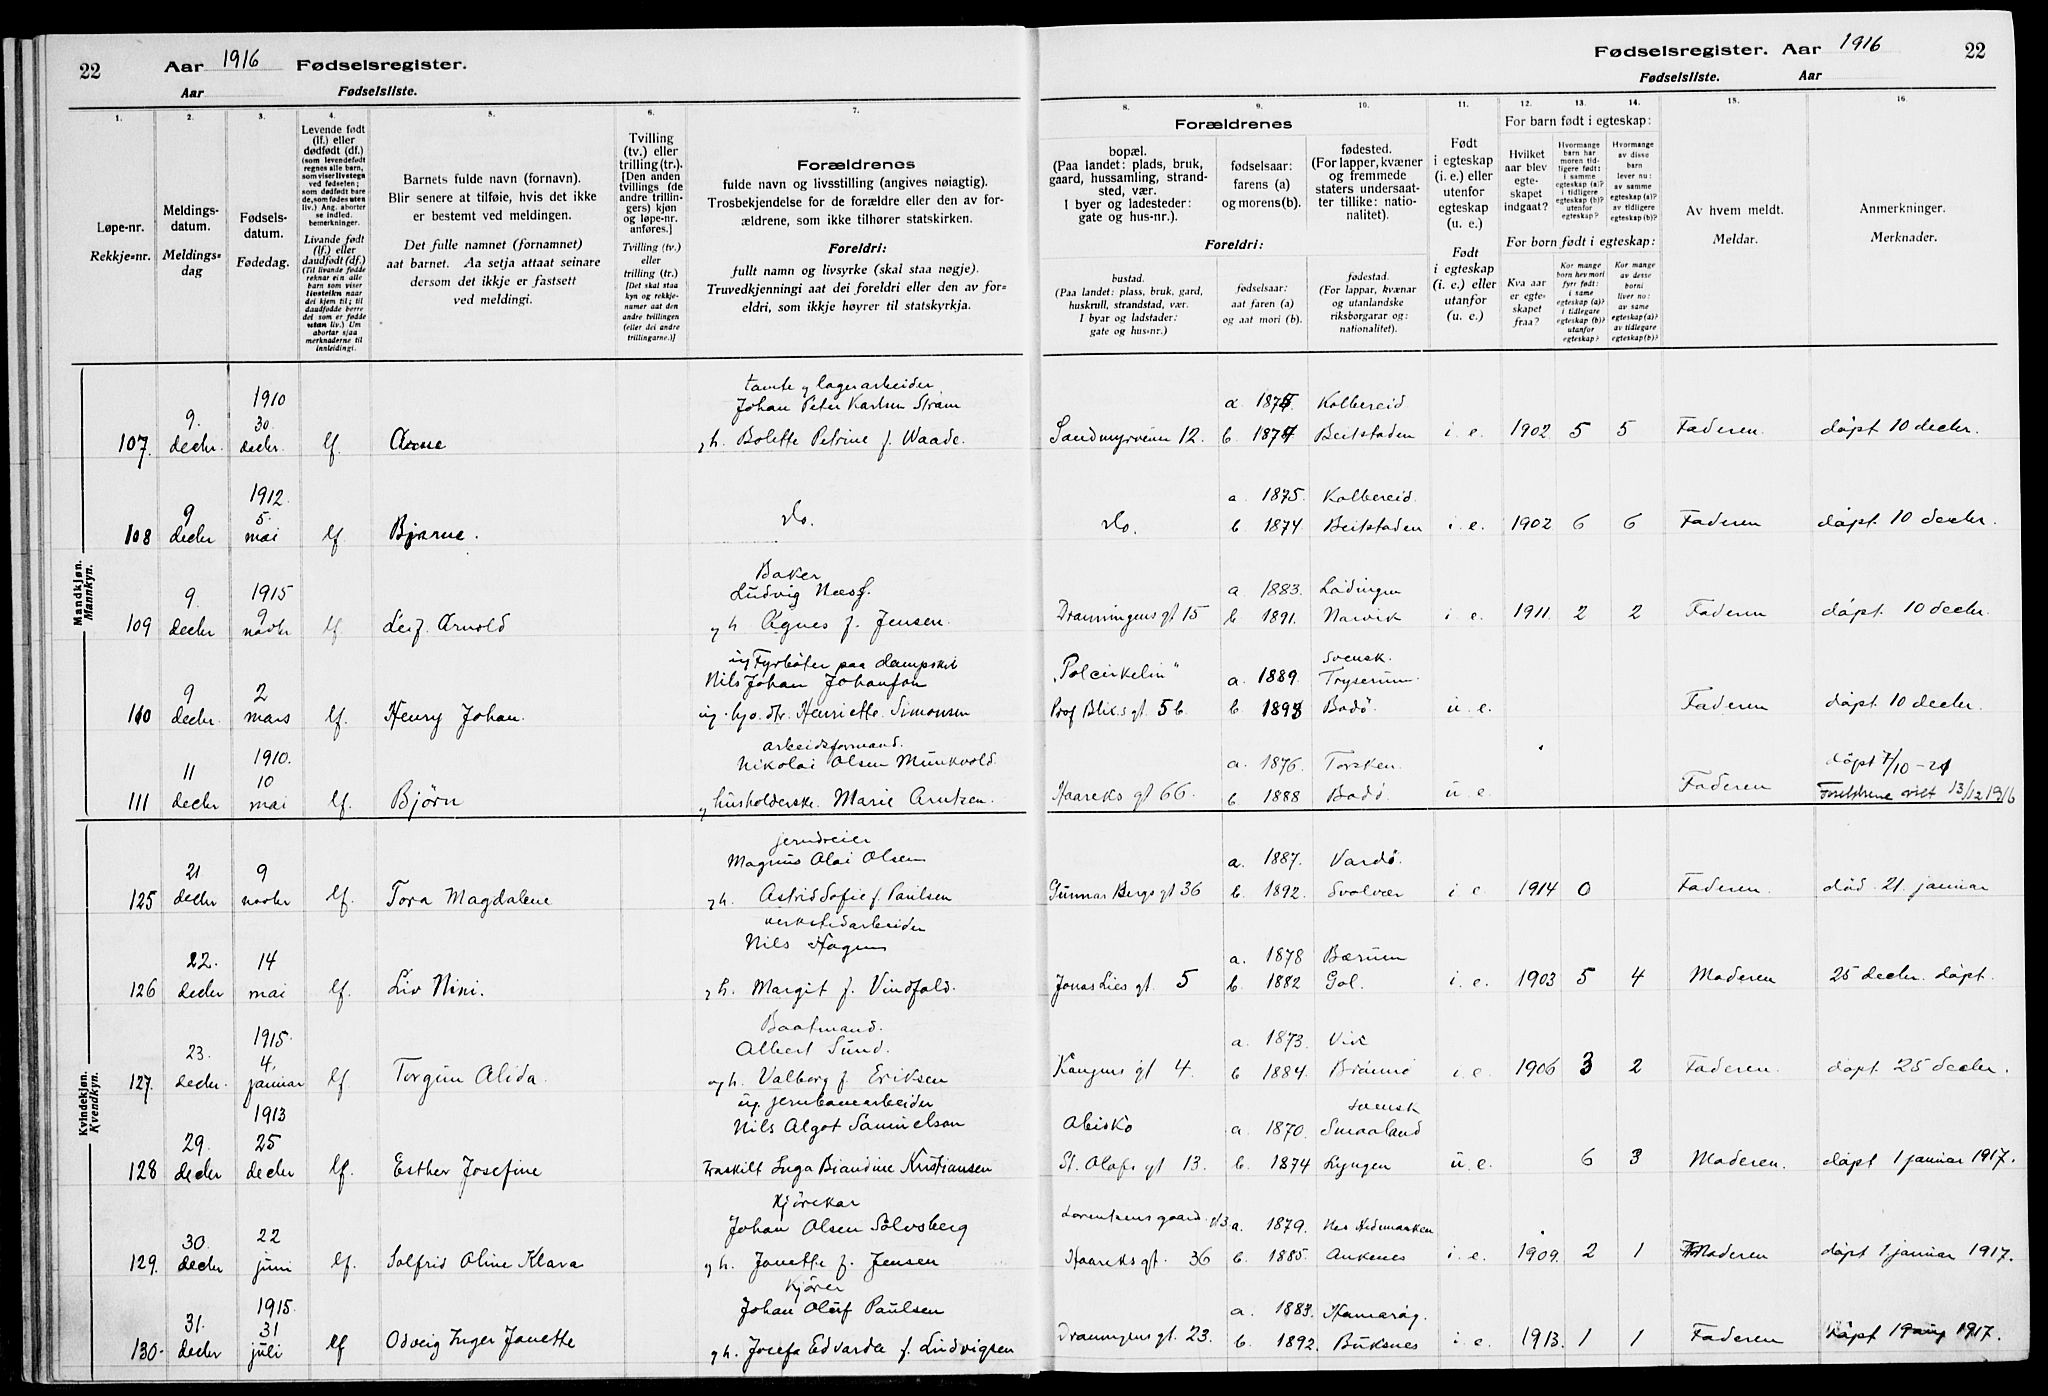 22
Aar 1916 Fødselsregister.
Aar Fødselsliste.
Fødselsregister. Aar 1916 22
Fødselsliste. Aar
1.
Løpe-nr.
Rekkje-nr.
2.
Meldings-
datum.
Meldings-
dag
3.
Fødsels-
datum.
Fødedag.
4.
Levende født
(lf.) eller
dødfødt (df.)
(som levendefødt
regnes alle barn,
som viser livstegn
ved fødselen;
som dødfødt bare
de, som fødes uten
liv.) Ang. aborter
se indled.
bemerkninger.
Livande født
(lf.) eller
daudfødt (df.)
(Til livande fødde
reknar ein alle
barn som viser
livsteikn naar
dei kjem til; til
daudfødde berre
dei som er fødde
utan liv.) Um
abortar sjaa
merknaderne til
innleidingi.
5.
Barnets fulde navn (fornavn).
Blir senere at tilføie, hvis det ikke
er bestemt ved meldingen.
Det fulle namnet (fornamnet)
aat barnet. Aa setja attaat seinare
dersom det ikkje er fastsett
ved meldingi.
6.
Tvilling
(tv.) eller
trilling (tr.).
[Den anden
tvillings (de
andre trillin-
gers) kjøn
og løpe-nr.
anføres.]
Tvilling (tv.)
eller
trilling (tr.)
[Det skal staa
kyn og rekkje-
numer aat den
andre tvillingen
(eller dei andre
trillingarne.)]
7.
Forældrenes
fulde navn og livsstilling (angives nøiagtig).
Trosbekjendelse for de forældre eller den av for-
ældrene, som ikke tilhører statskirken.
Foreldri:
fullt namn og livsyrke (skal staa nøgje).
Truvedkjenningi aat dei foreldri eller den av for-
eldri, som ikkje høyrer til statskyrkja.
Forældrenes
8.
bopæl.
(Paa landet: plads, bruk,
gaard, hussamling, strand-
sted, vær.
I byer og ladesteder:
gate og hus-nr.).
9.
fødselsaar:
farens (a)
og morens (b).
10.
fødested.
(For lapper, kvæner
og fremmede
staters undersaat-
ter tillike: natio-
nalitet).
Foreldri:
bustad.
(Paa landet: plass, bruk, gard,
huskrull, strandstad, vær.
I byar og ladstader:
gate og hus-nr.)
fødselsaar:
aat faren (a)
og aat mori (b).
fødestad.
(For lappar, kvænar
og utanlandske
riksborgarar og:
nationalitet).
11.
Født
i egteskap
(i. e.) eller
utenfor
egteskap
(u. e.)
Født
i egteskap
(i. e.) eller
utanfor
(u. e.)
12. 13. 14.
For barn født i egteskap:
Hvilket
aar blev
egte-
skapet
indgaat?
Hvormange
barn har
moren tid-
ligere født:
i samme
egteskap (a)?
i tidligere
egteskap (b)?
utenfor
egteskap?
Hvormange
av disse
barn
lever nu:
av samme
egteskap (a)?
av tidligere
egteskap (b)?
For born født i egteskap:
Kva aar
er egte-
skapet
fraa?
Kor mange
born hev mori
fyrr født:
i same
egteskap (a)?
i tidlegare
egteskap (b)?
utanfor
egteskap?
Kor mange
av desse
borni
liver no:
av same
egteskap (a)?
av tidlegare
egteskap (b)?
15.
Av hvem meldt.
Meldar.
16.
Anmerkninger.
Merknader.
Mandkjøn.
Mannkyn.
107. 9. decbr. 1910 30. decbr. lf. Arne
tomte og lagerarbeider
Johan Peter Karlsen Strøm
og h. Bolette Petrine f. Waade.
Sandmyrveien 12. a. 1875. Kolbereid
b. 1874 Beitstaden i. e. 1902 5 5 Faderen. døpt 10 decbr.
108 9 decbr 1912. 5. mai lf Bjarne. do.
do. a. 1875. Kolbereid.
b. 1874 Beitstaden i. e. 1902 6 6 Faderen døpt. 10 decbr.
109 9. decbr 1915 9 novbr lf Leif Arnold
Baker
Ludvig Næss.
og h Agnes f. Jensen.
Dronningens gt 15 a 1883. Lødingen
b 1891. Narvik i. e. 1911. 2 2 Faderen døpt. 10 decbr.
110 9 decbr. 2 mars lf. Henry Johan.
ug Fyrbøter paa dampskib
Nils Johan Johansson
ug. hjv. dtr. Henriette Simonsen
„Polcirkelin“ a. 1889. Svensk. Tryserum.
Prof Bliks gt. 5 b. b. 1898 Bodø. u. e. Faderen døpt. 10 decbr.
111 11 decbr 1910. 10 mai lf. Bjørn
arbeidsformand.
Nikolai Olsen Munkvold.
og husholderske. Marie Arntzen.
Haareks gt 66. a. 1876. Torsken.
b 1888 Bodø. u. e. Faderen døpt 7/10-21
Foreldrene viet 13/12 1916
Kvindekjøn.
Kvendkyn.
125 21 decbr 9 novbr lf. Tora Magdalene
jerndreier
Magnus Olai Olsen
og h. Astrid Sofie f. Paulsen
Gunnar Bergs gt 36 a. 1887. Vardø.
b. 1892. Svolvær i e. 1914 0 Faderen. død. 21. januar
126 22. decbr 14 mai lf. Liv Nini.
verkstedarbeider
Nils Hagen
og h. Margit f. Vindfald.
Jonas Lies gt. 5 a. 1878 Bærum
b. 1882 Gol. i. e. 1903 5 4 Moderen 25 decbr. døpt.
127. 23. decbr. 1915. 4. januar lf Torgun Alida.
Baatmand.
Albert Sund.
og h. Valborg f. Eriksen
Kongens gt 4. a. 1873. Vik
b 1884. Brønnø i. e. 1906 3 2 Faderen. døpt 25 decbr.
128 29. decbr 1913 25 decbr lf. Esther Josefine
ug. jernbanearbeider
Nils Algot Samuelson
fraskilt Inga Biandine Kristiansen
Abisko a. 1870. svensk Smaaland
St. Olafs gt 13. b. 1874 Lyngen u. e. 6 3 Moderen. døpt 1 januar 1917.
129. 30. decbr 22 juni lf. Solfrid Oline Klara
Kjørekar
Johan Olsen Solvsberg
og h. Janette f. Jensen
Lorentzens gaard. a. 1879. Nes Hedemarken
Haareks gt. 36 b. 1885. Ankenes i. e. 1909. 2 1 Moderen døpt 1 januar 1917.
130. 31. decbr 1915. 31 juli lf Odveig Inger Janette
Kjører
Johan Oluf Paulsen
og h. Josefa Edvarda f. Ludvigsen
Dronningens gt. 23. a. 1883. Hamarøy.
b. 1892. Buksnes i. e. 1913. 1 1 Faderen døpt 19 aug 1917.